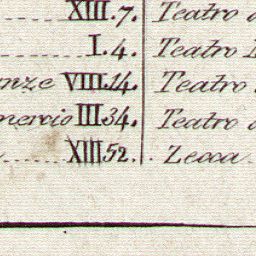 XIII.7. Teatro
I.4. Teatro
VIII.14. Teatro
III 34. Teatro
XIII 52. Zecca